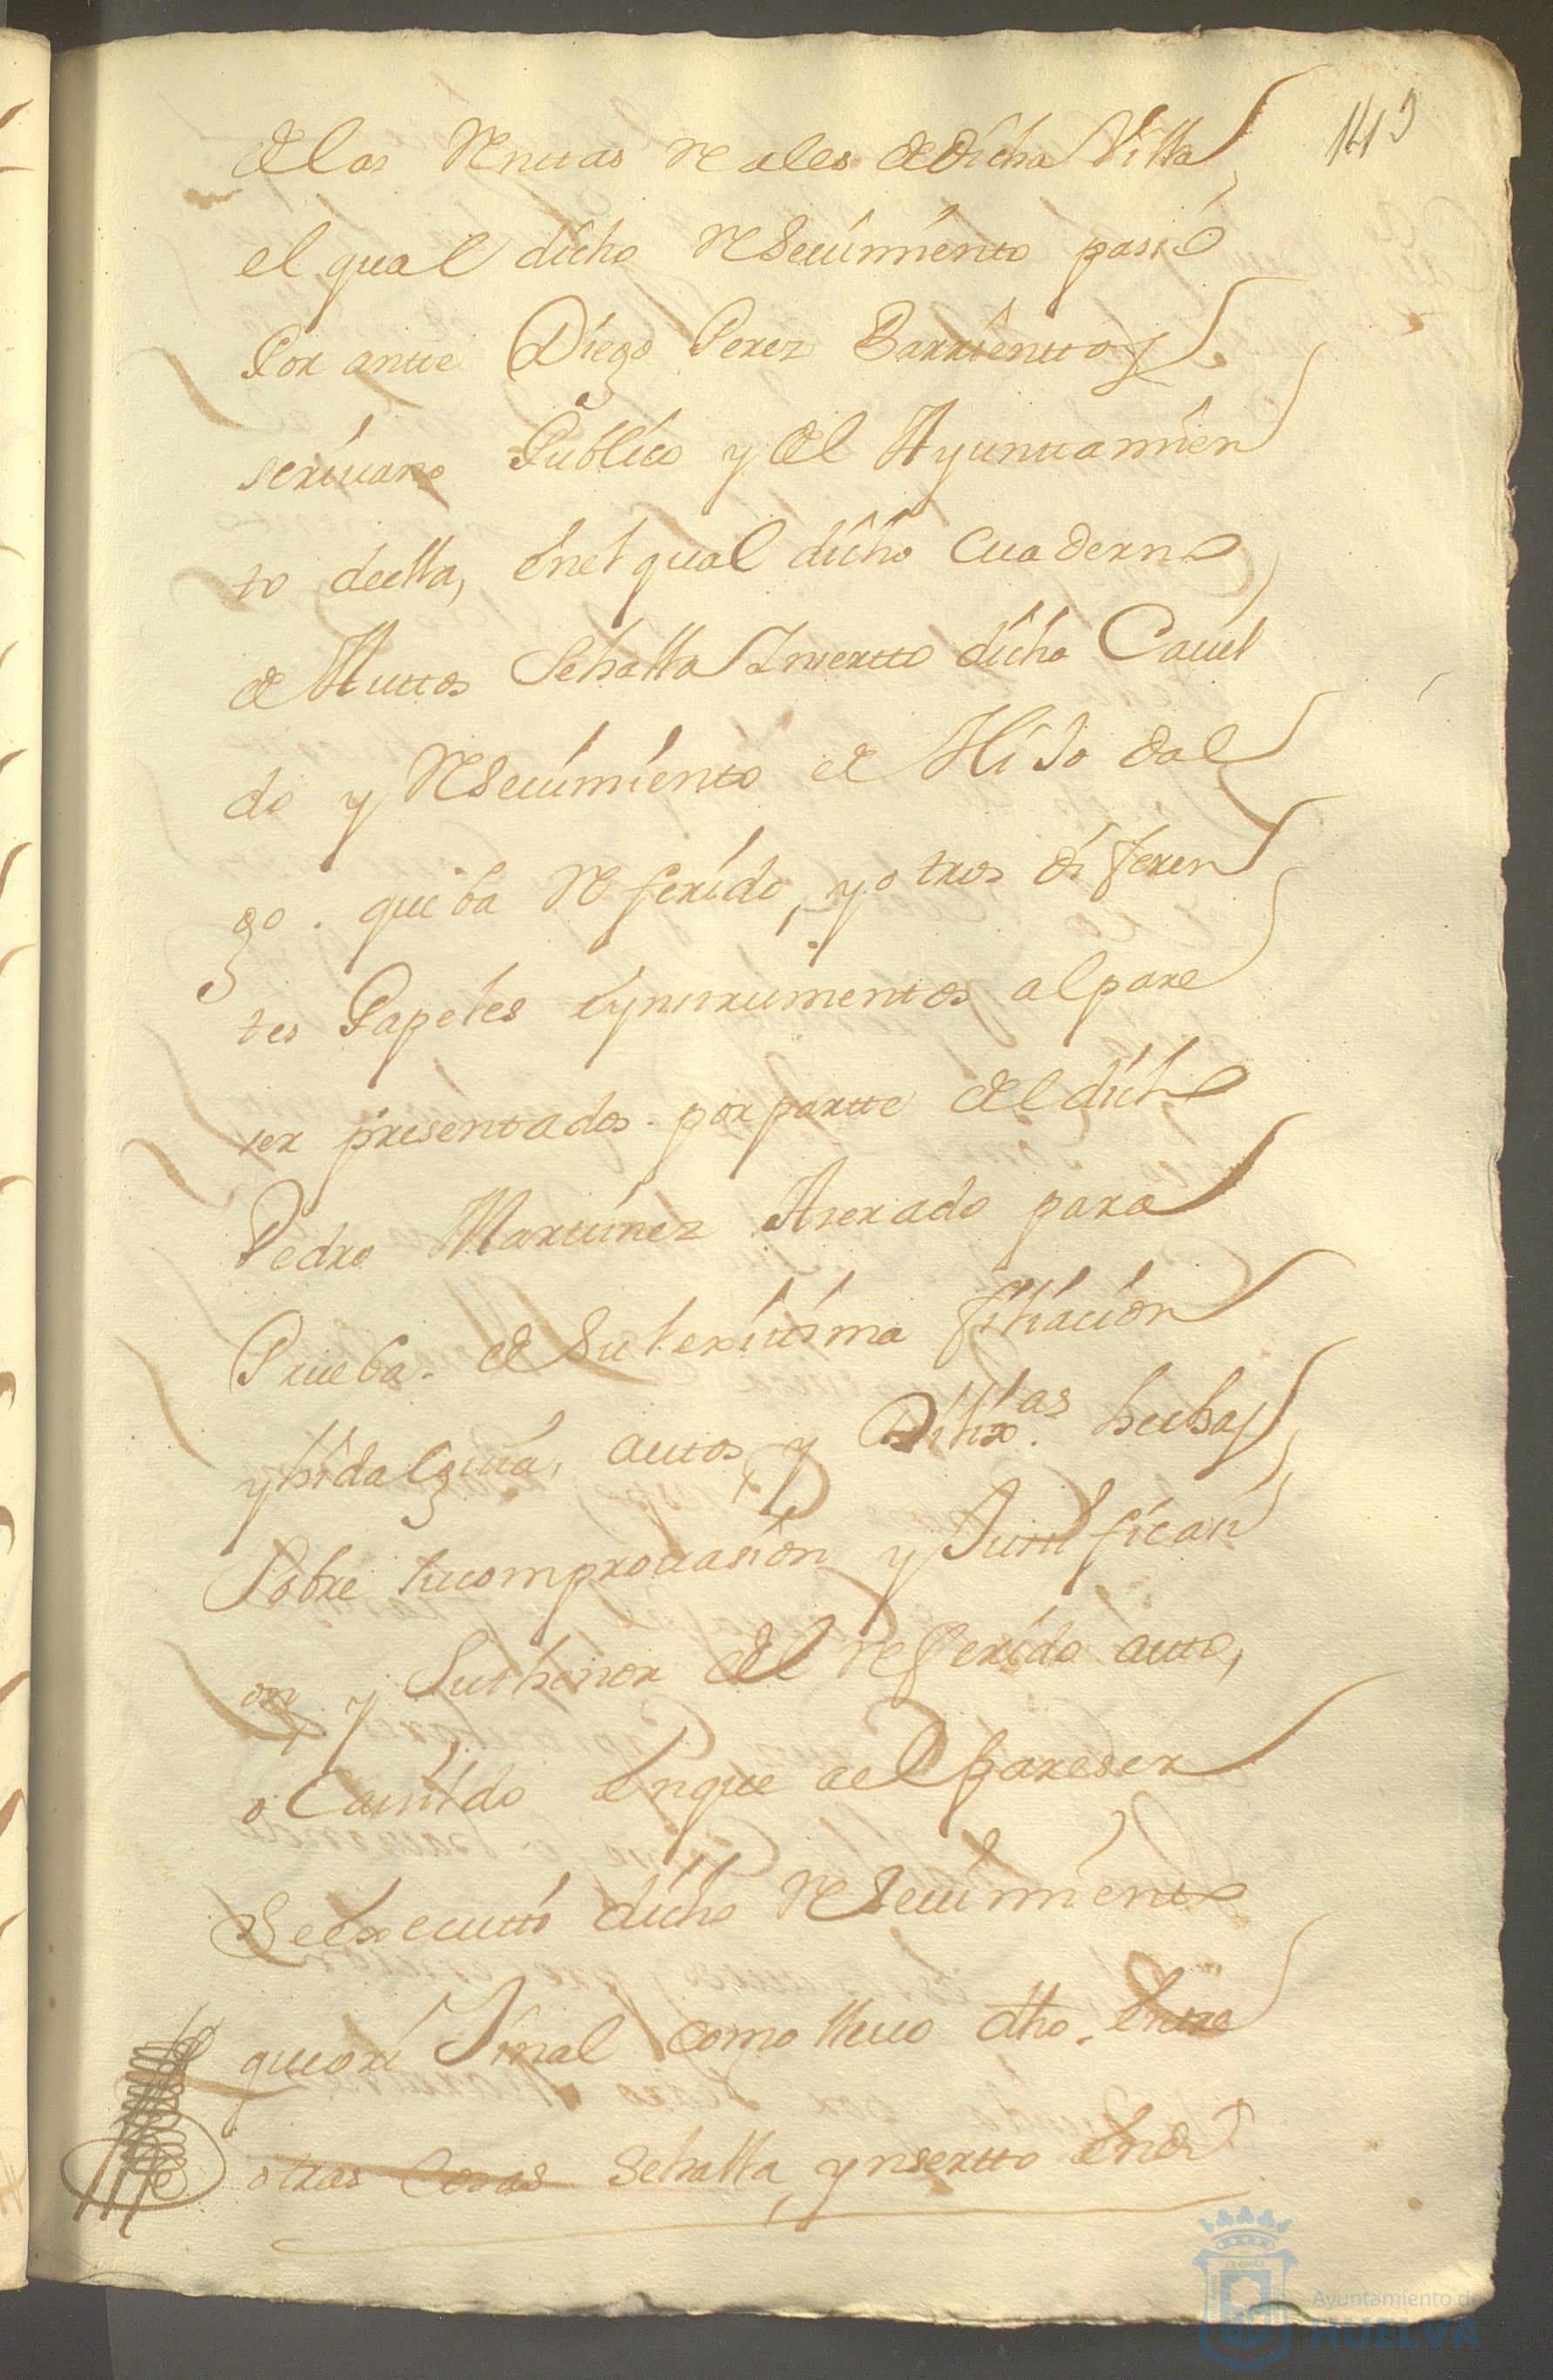 1413
de las Renttas Reales de dicha Villa
el qual dicho Reseuimiento passó
Por antte Diego Perez Barrienttos
scriuano Publico y del Ayunttamien
to deella, enel qual dicho Cuaderno
de Auttos Sehalla Ynsertto dicho Cauil
do y Reseuimiento de Hijo dal
go. queba Referido, yotros diferen
tes Papeles eynstrumentos alpare
ser presentados. porpartte del dicho
Pedro Martinez Aserado para
Prueba. de Sulexitima filiacion
yhidalguia, auttos y Dilixas. hechas
Sobre sucomprouasion y Justificasi
on, y Suthenor del referido autto,
o Cauildo enque ael pareser
Seexecuttó dicho Reseuimiento
queori Jinal como lleuo dho. entre
otras Cosas Sehalla, ynsertto endi
Ayuntamiento de
HUELVA